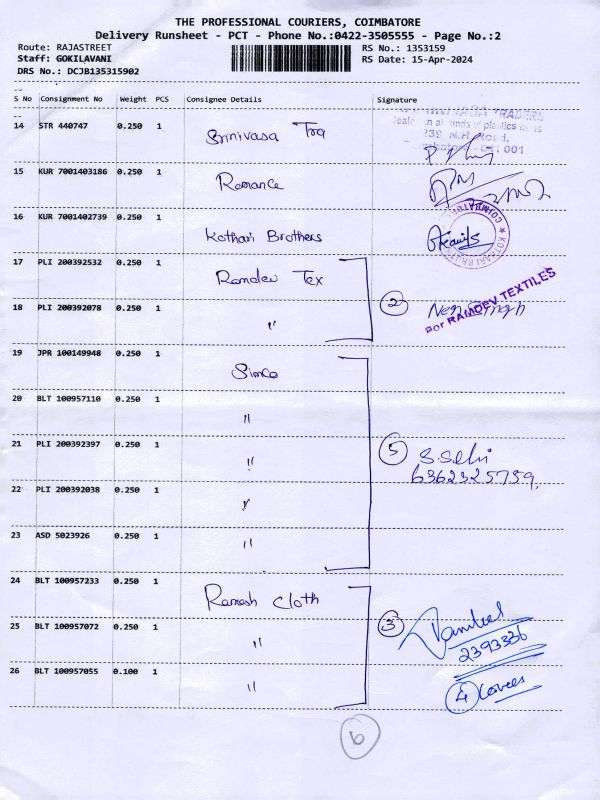 THE PROFESSIONAL COURIERS, COIMBATORE
Delivery Runsheet - PCT - Phone No.:0422-3505555 - Page No.:2
Route: RAJASTREET RS No.: 1353159
Staff: GOKILAVANI RS Date: 15-Apr-2024
DRS No.: DCJB135315902
S No Consignment No Weight PCS Consignee Details Signature
14 STR 440747 0.250 1 Srinivasa Tra
TRADERS
in all kinds of plastics
239 N.H. Road,
001
15 KUR 7001403186 0.250 1 Romance
16 KUR 7001402739 0.250 1 Kothari Brothers
17 PLI 200392532 0.250 1 Ramdev Tex
18 PLI 200392078 0.250 1 " 2
For RAMDEV TEXTILES
19 JPR 100149948 0.250 1 Simco
20 BLT 100957110 0.250 1 "
21 PLI 200392397 0.250 1 " 5 S.Selvi
6362325759
22 PLI 200392038 0.250 1 "
23 ASD 5023926 0.250 1 "
24 BLT 100957233 0.250 1 Ramesh Cloth
25 BLT 100957072 0.250 1 " 3
2393336
26 BLT 100957055 0.100 1 "
4 Covers
6